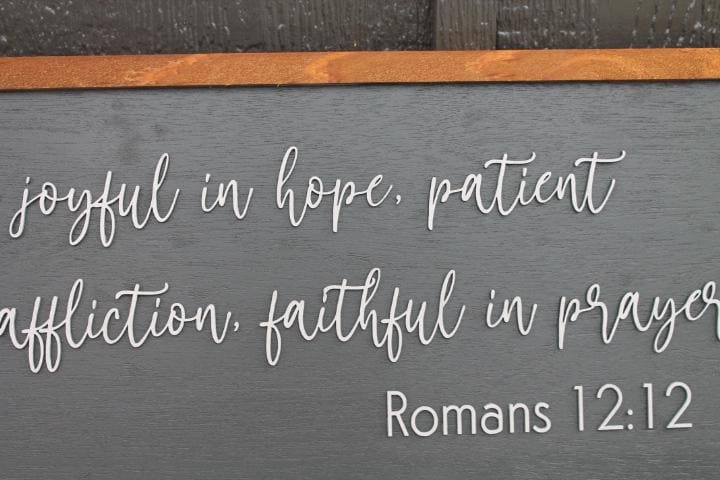 joyful in hope, patient
affliction, faithful in prayer
Romans 12:12